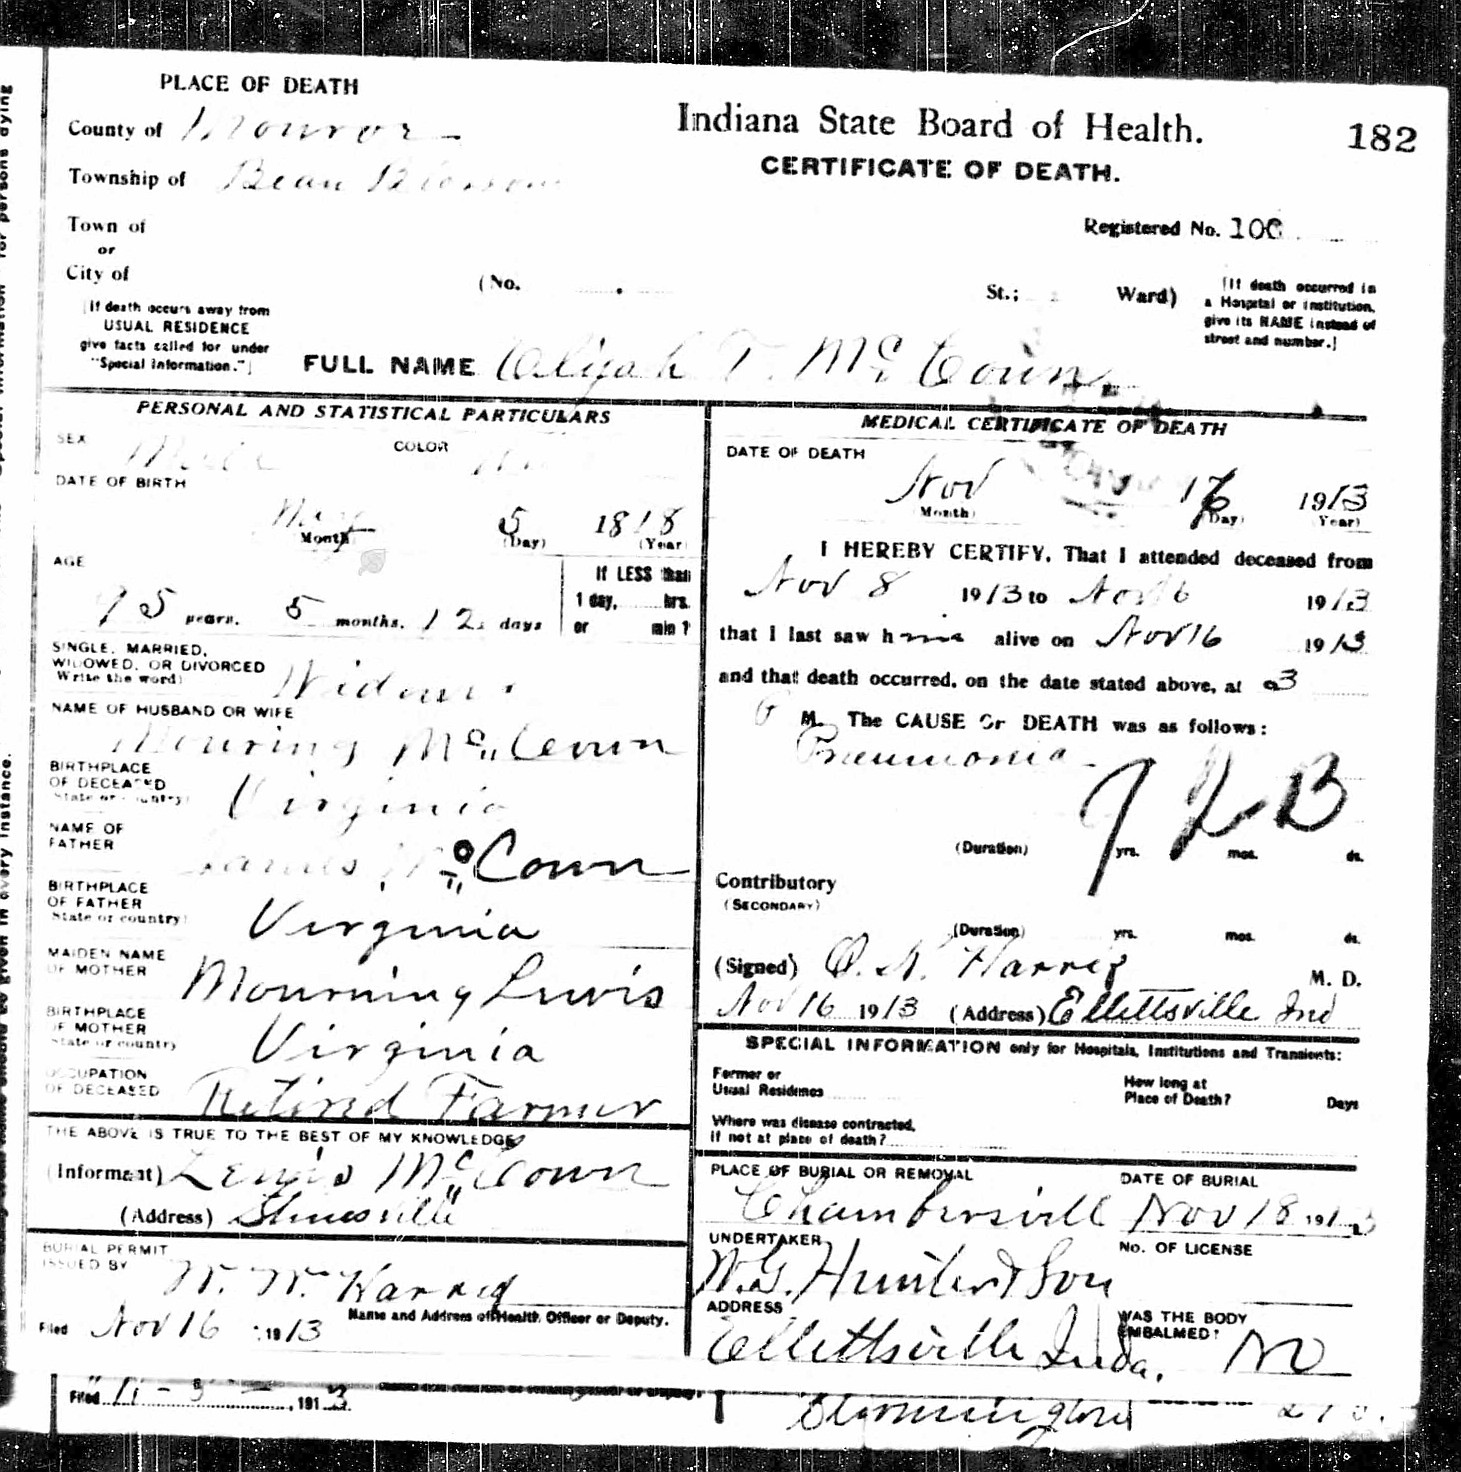 PLACE OF DEATH
County of Monroe
Township of Bean Blossom
Town of
or
City of
(No. St.; Ward)
[If death occurs away from
USUAL RESIDENCE
give facts called for under
"Special Information."]
Indiana State Board of Health.
CERTIFICATE OF DEATH.
182
Registered No. 100
[If death occurred in
a Hospital or Institution,
give its NAME instead of
street and number.]
FULL NAME Elijah T. McCown
PERSONAL AND STATISTICAL PARTICULARS
SEX Male COLOR
DATE OF BIRTH
May 5 1818
Month (Day) (Year)
AGE
95 years. 5 months. 12 days
If LESS than
1 day, hrs.
or min ?
SINGLE, MARRIED,
WIDOWED, OR DIVORCED
Write the word)
Widower
NAME OF HUSBAND OR WIFE
Mouring McCown
BIRTHPLACE
OF DECEASED
State or country)
Virginia
NAME OF
FATHER
James McCown
BIRTHPLACE
OF FATHER
State or country)
Virginia
MAIDEN NAME
OF MOTHER
Mourning Lewis
BIRTHPLACE
OF MOTHER
State or country
Virginia
OCCUPATION
OF DECEASED
Retired Farmer
THE ABOVE IS TRUE TO THE BEST OF MY KNOWLEDGE
(Informant) Lewis McCown
(Address) Stinesville
BURIAL PERMIT
ISSUED BY
W. W. Harris
Name and Address of Health Officer or Deputy.
Filed Nov 16 1913
MEDICAL CERTIFICATE OF DEATH
DATE OF DEATH
Nov 16 1913
(Month) (Day) (Year)
I HEREBY CERTIFY, That I attended deceased from
Nov 8 1913 to Nov 16 1913
that I last saw him alive on Nov 16 1913
and that death occurred, on the date stated above, at 3
P M. The CAUSE OF DEATH was as follows:
Pneumonia
92B
(Duration) yrs. mos. ds.
Contributory
(SECONDARY)
(Duration) yrs. mos. ds.
(Signed) Harris M. D.
Nov 16 1913 (Address) Ellettsville Ind
SPECIAL INFORMATION only for Hospitals, Institutions and Transients:
Former or
Usual Residence
How long at
Place of Death? Days
Where was disease contracted,
if not at place of death?
PLACE OF BURIAL OR REMOVAL
Chambersvill
DATE OF BURIAL
Nov 18 1913
UNDERTAKER
W.G. Hunter & Son
No. OF LICENSE
ADDRESS
Ellettsville Inda.
WAS THE BODY
EMBALMED?
No
Filed 1913
Bloomington